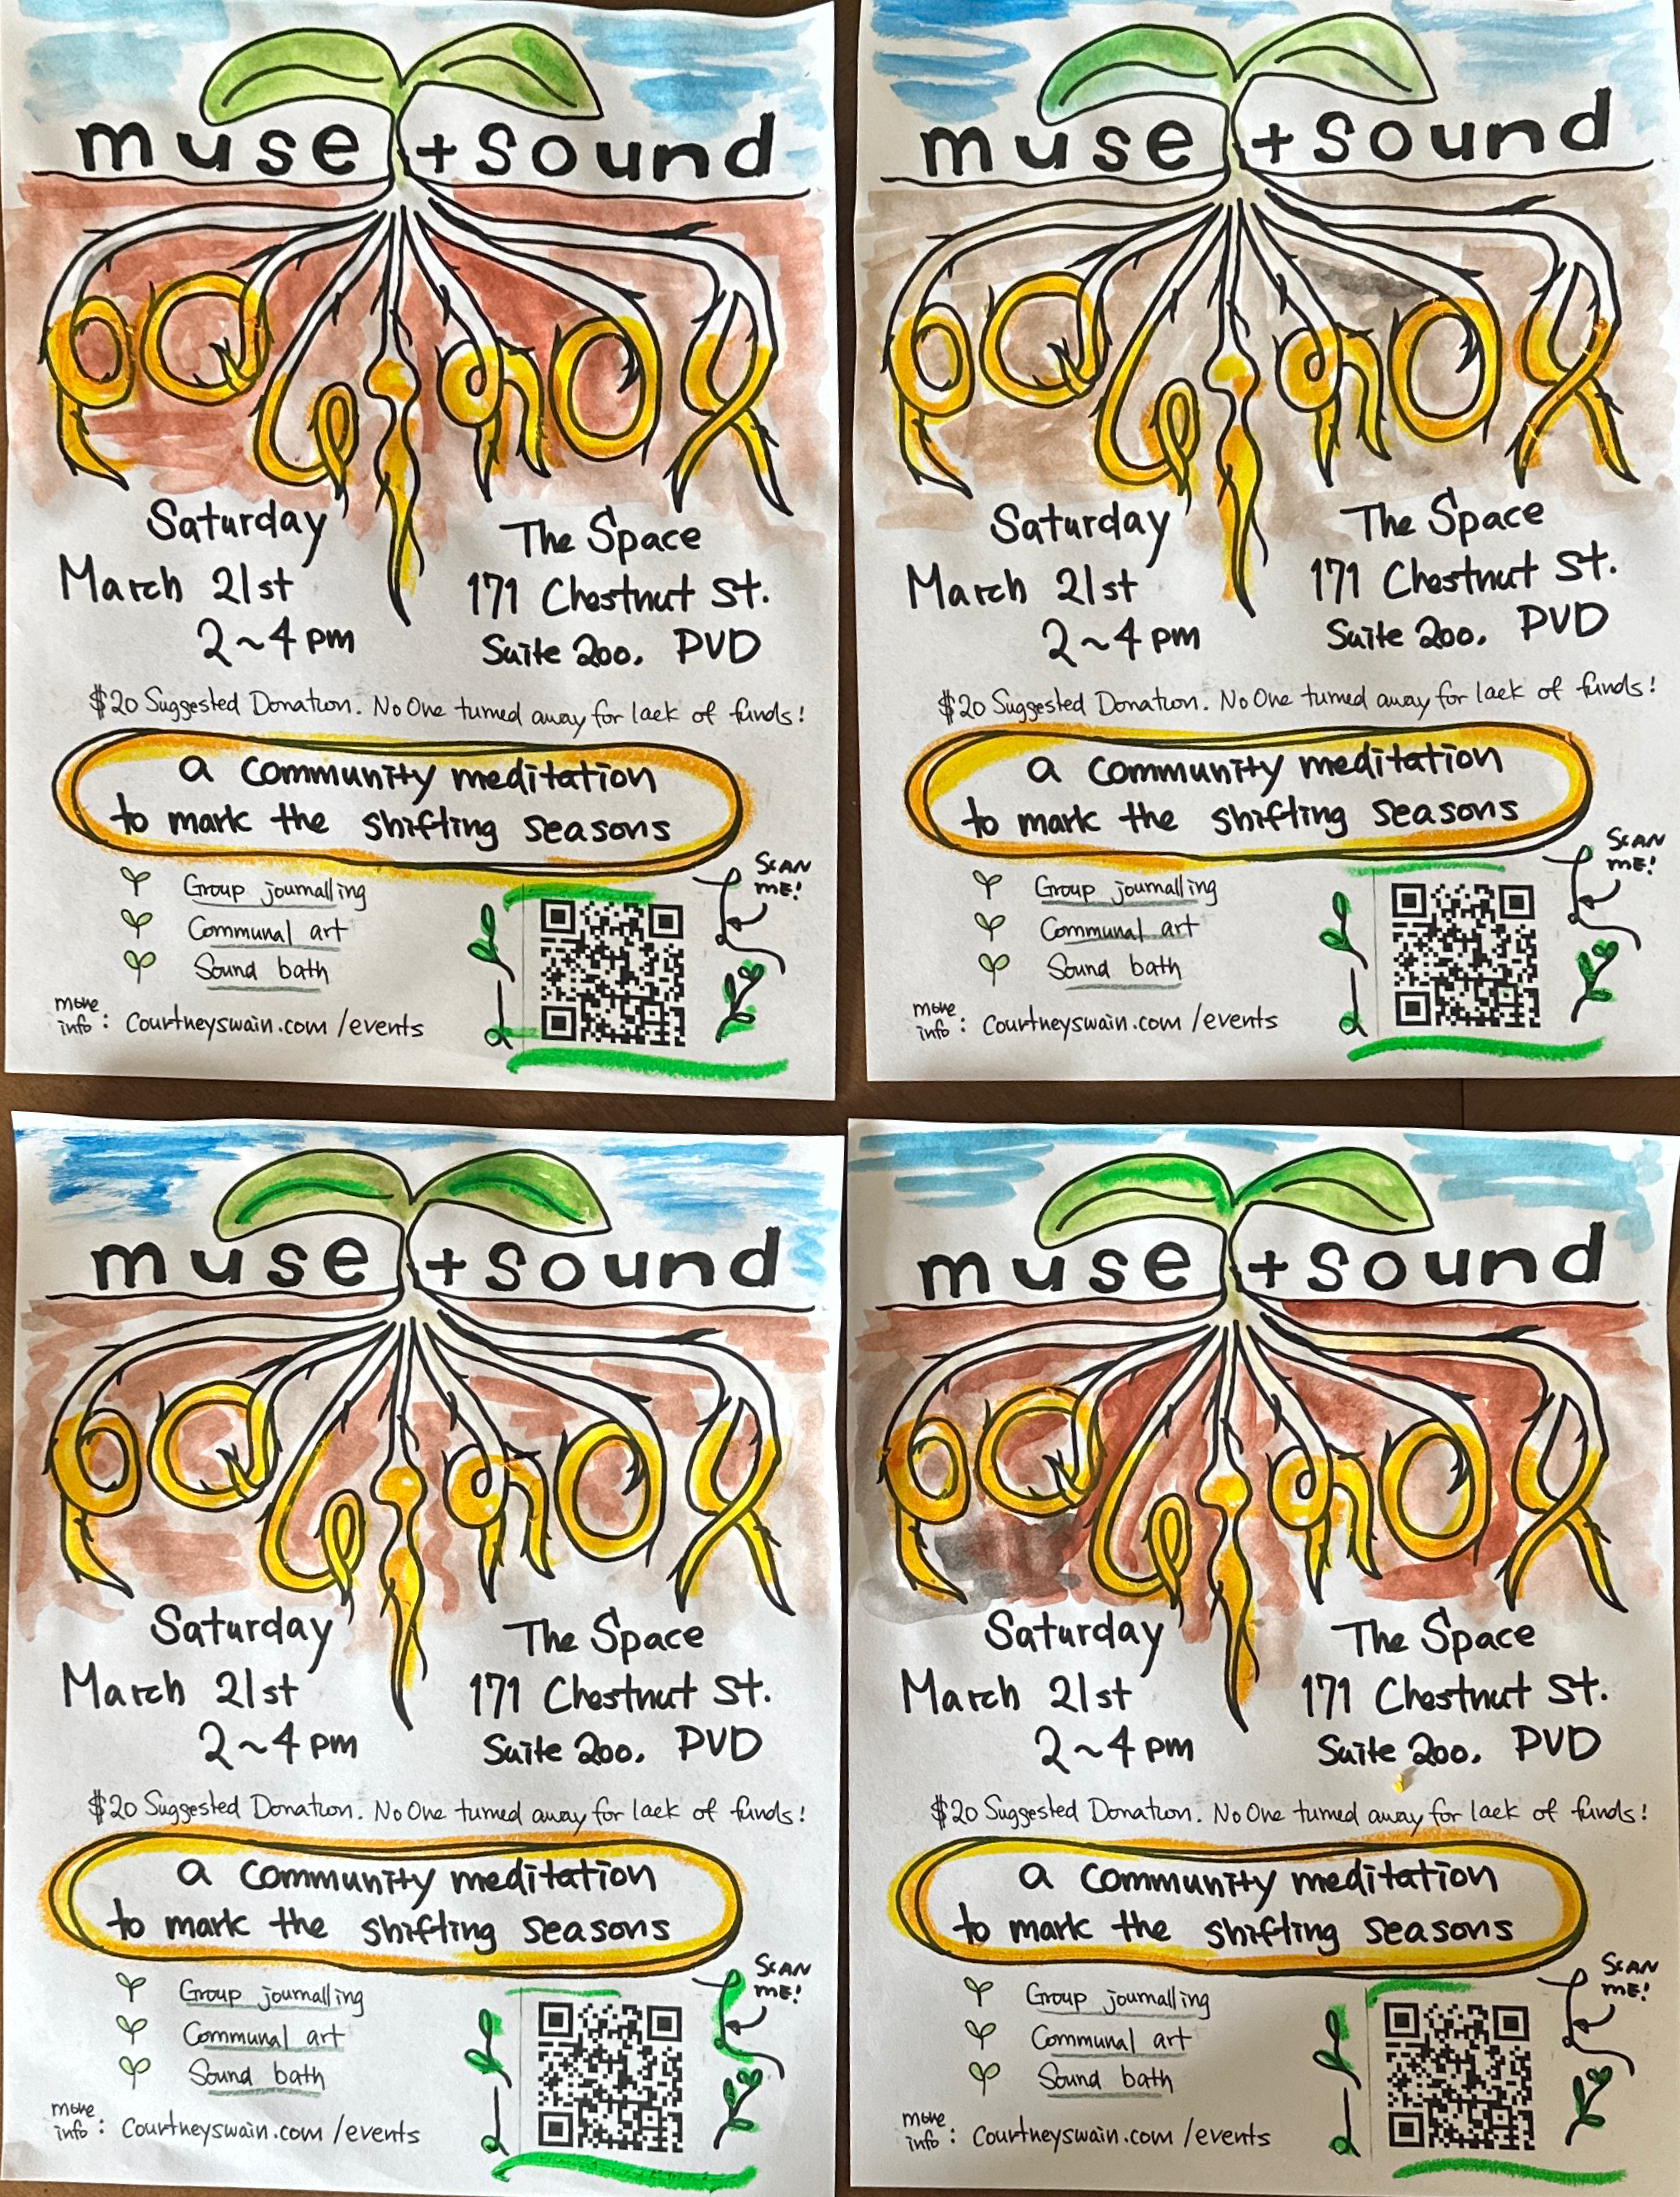 muse + sound
eQuinox
Saturday
March 21st
2~4 pm
The Space
171 Chestnut St.
Suite 200, PVD
$20 Suggested Donation. No One turned away for lack of funds!
a community meditation
to mark the shifting seasons
Group journalling
Communal art
Sound bath
SCAN
ME!
more
info : Courtneyswain.com/events
muse + sound
eQuinox
Saturday
March 21st
2~4 pm
The Space
171 Chestnut St.
Suite 200, PVD
$20 Suggested Donation. No One turned away for lack of funds!
a community meditation
to mark the shifting seasons
Group journalling
Communal art
Sound bath
SCAN
ME!
more
info : Courtneyswain.com/events
muse + sound
eQuinox
Saturday
March 21st
2~4 pm
The Space
171 Chestnut St.
Suite 200, PVD
$20 Suggested Donation. No One turned away for lack of funds!
a community meditation
to mark the shifting seasons
Group journalling
Communal art
Sound bath
SCAN
ME!
more
info : Courtneyswain.com/events
muse + sound
eQuinox
Saturday
March 21st
2~4 pm
The Space
171 Chestnut St.
Suite 200, PVD
$20 Suggested Donation. No One turned away for lack of funds!
a community meditation
to mark the shifting seasons
Group journalling
Communal art
Sound bath
SCAN
ME!
more
info : Courtneyswain.com/events